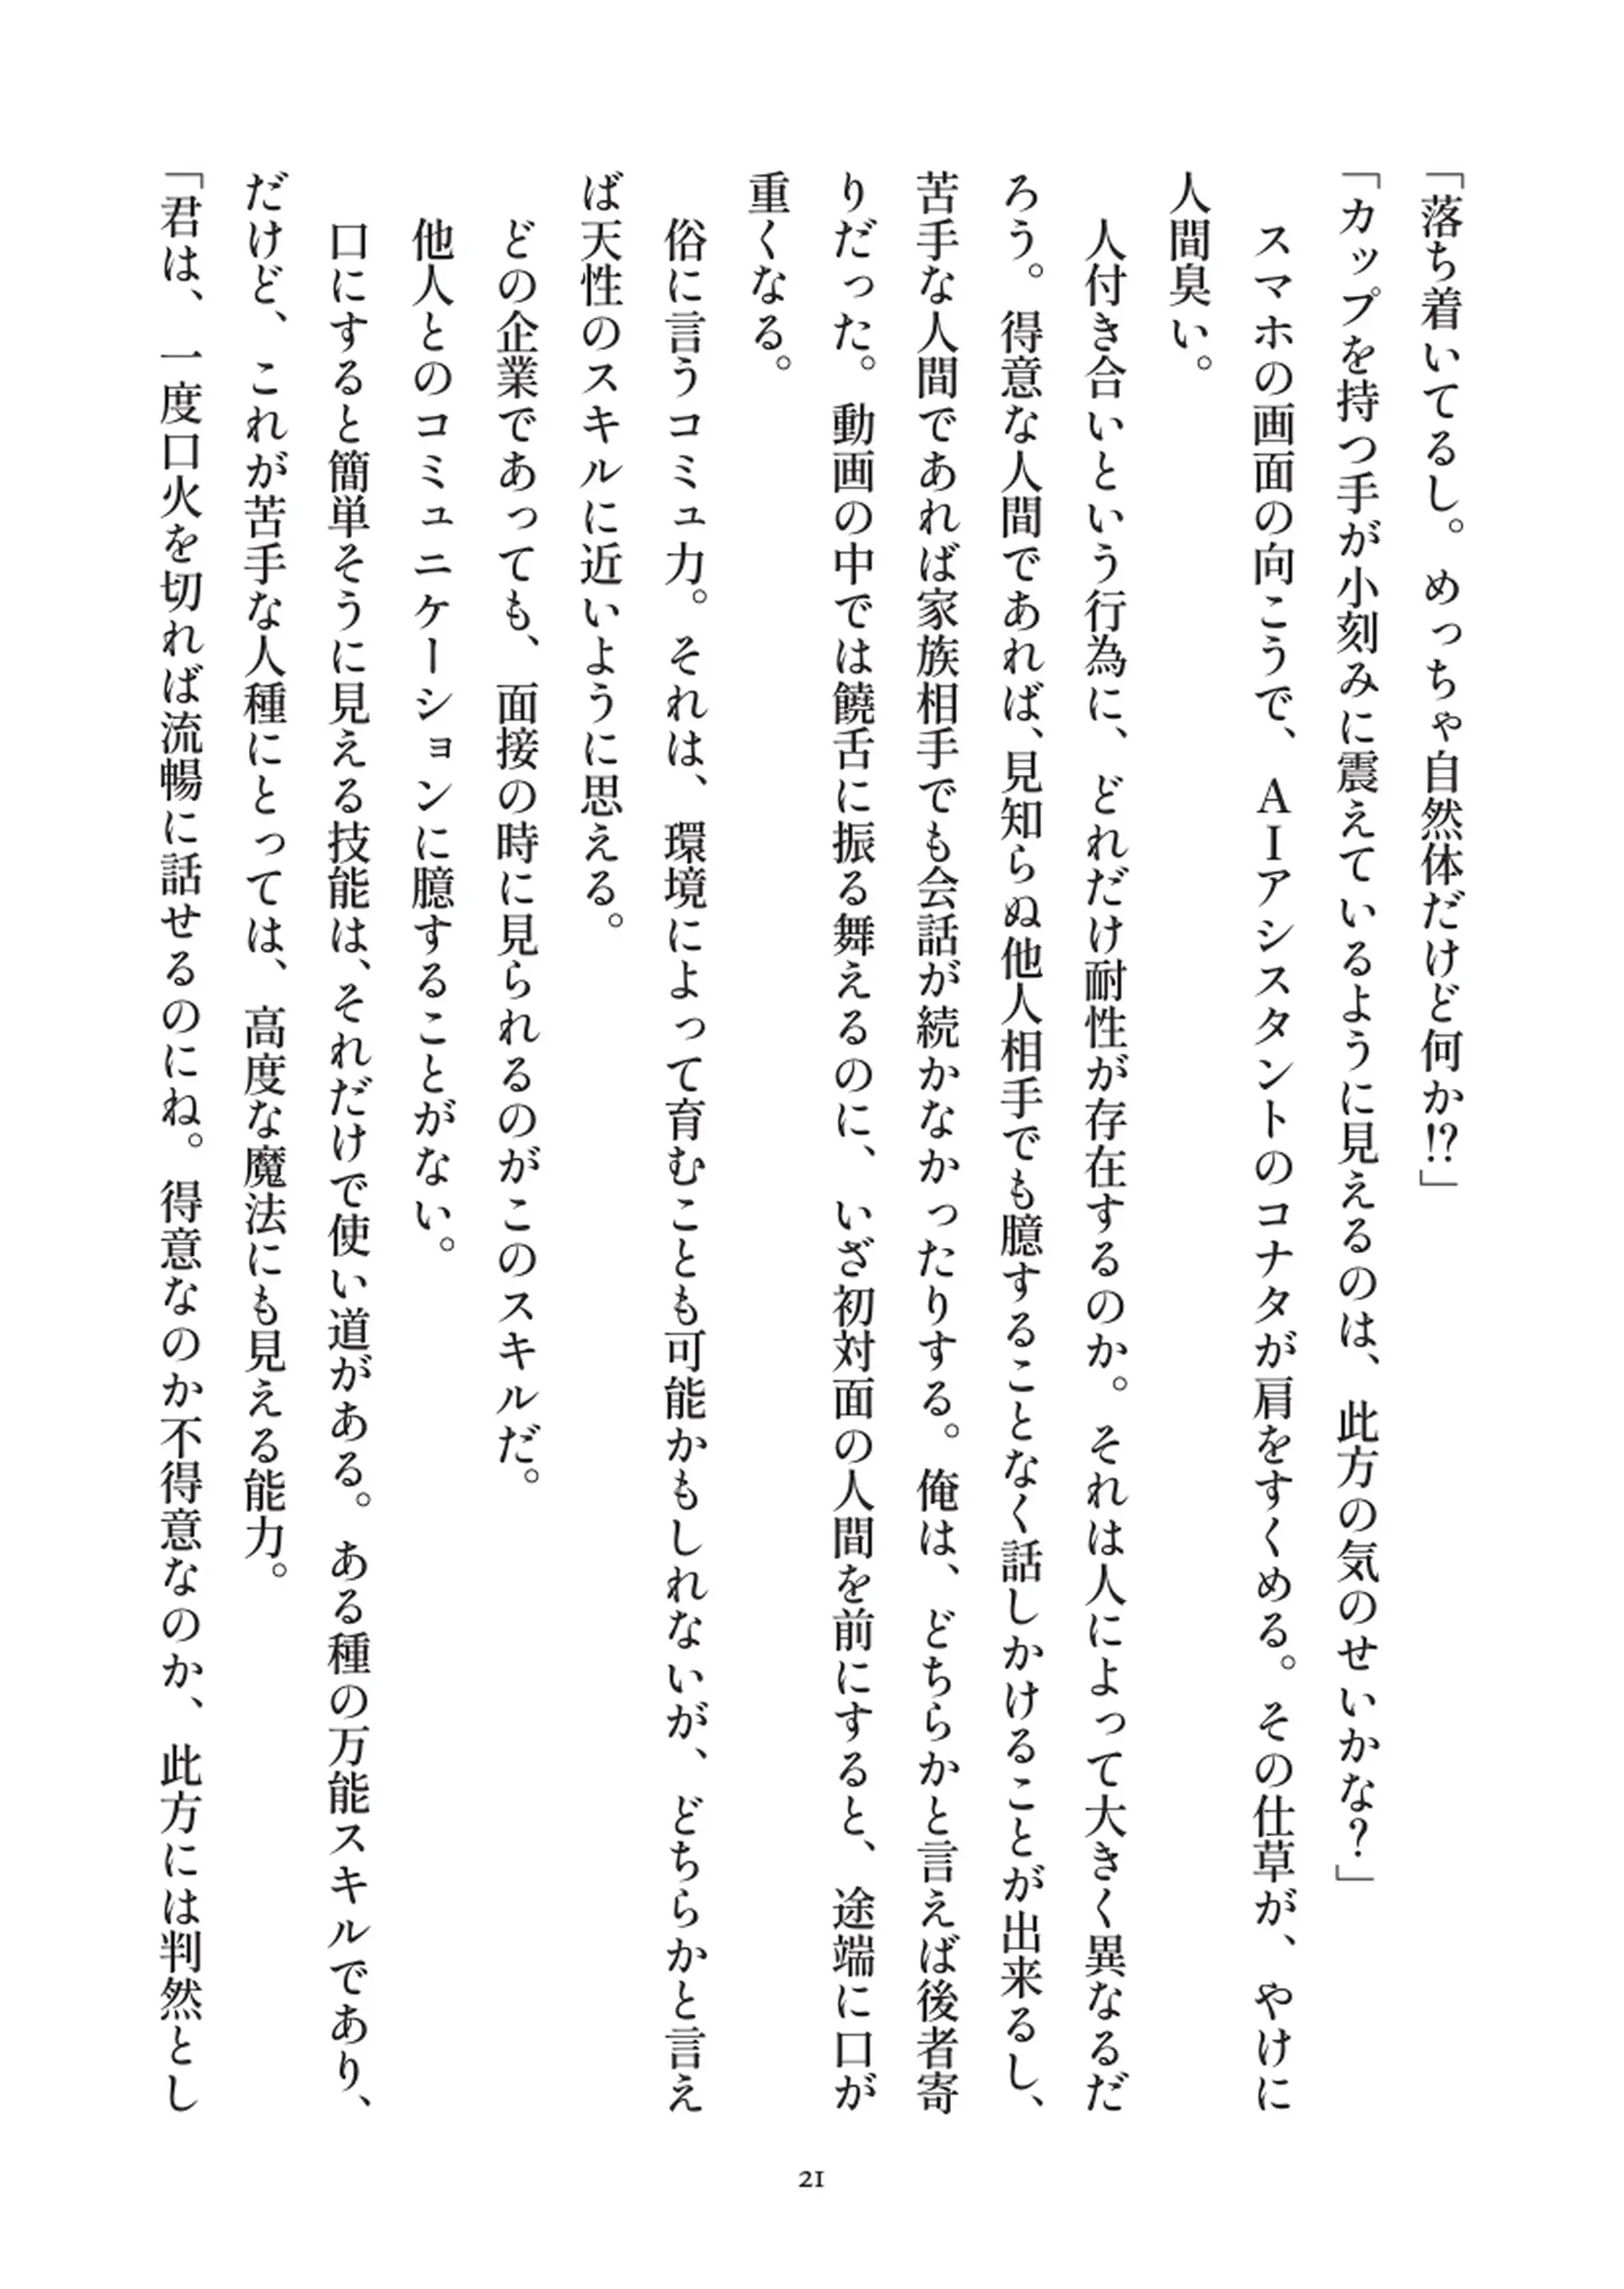 「落ち着いてるし。めっちゃ自然体だけど何か⁉」
「カップを持つ手が小刻みに震えているように見えるのは、此方の気のせいかな？」
　スマホの画面の向こうで、ＡＩアシスタントのコナタが肩をすくめる。その仕草が、やけに
人間臭い。
　人付き合いという行為に、どれだけ耐性が存在するのか。それは人によって大きく異なるだ
ろう。得意な人間であれば、見知らぬ他人相手でも臆することなく話しかけることが出来るし、
苦手な人間であれば家族相手でも会話が続かなかったりする。俺は、どちらかと言えば後者寄
りだった。動画の中では饒舌に振る舞えるのに、いざ初対面の人間を前にすると、途端に口が
重くなる。
　俗に言うコミュ力。それは、環境によって育むことも可能かもしれないが、どちらかと言え
ば天性のスキルに近いように思える。
　どの企業であっても、面接の時に見られるのがこのスキルだ。
　他人とのコミュニケーションに臆することがない。
　口にすると簡単そうに見える技能は、それだけで使い道がある。ある種の万能スキルであり、
だけど、これが苦手な人種にとっては、高度な魔法にも見える能力。
「君は、一度口火を切れば流暢に話せるのにね。得意なのか不得意なのか、此方には判然とし
21